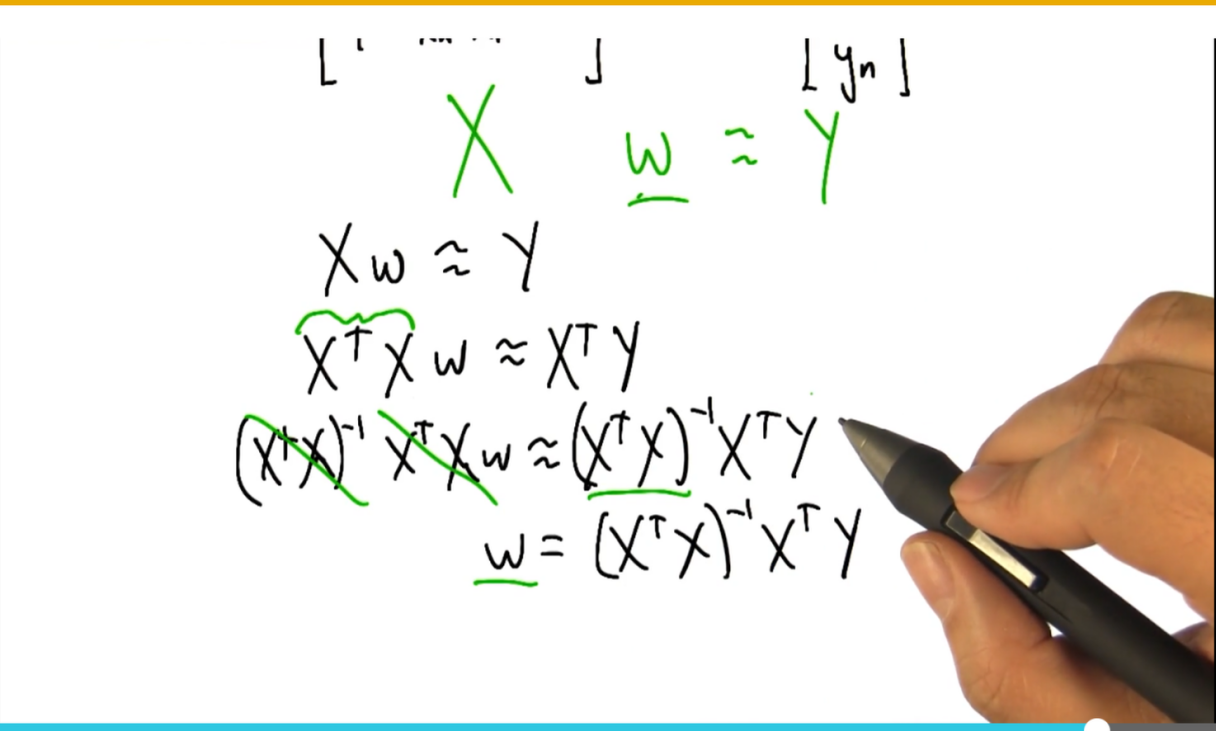 [ ] [ yn ]
X w ≈ Y
Xw ≈ Y
XᵀX w ≈ XᵀY
(XᵀX)⁻¹ XᵀX w ≈ (XᵀX)⁻¹XᵀY
w = (XᵀX)⁻¹XᵀY